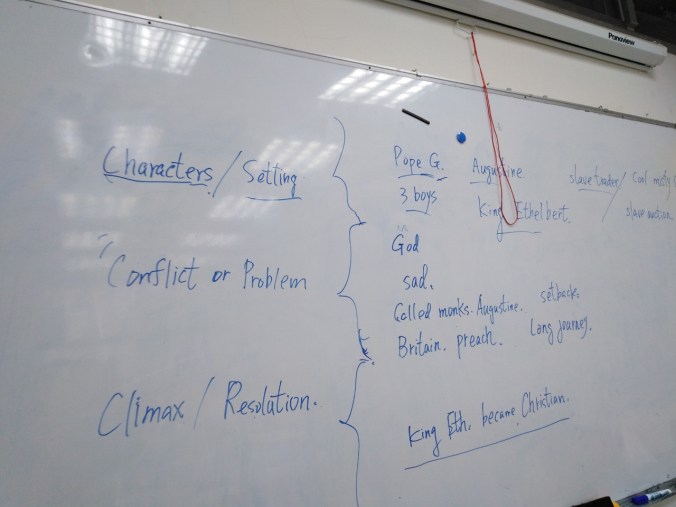 Panaview
Characters / Setting
Pope G. Augustine slave trader /
3 boys King Ethelbert. slave auction.
Conflict or Problem
God
sad.
Called monks. Augustine. setback.
Britain. preach. Long journey.
Climax / Resolation.
King Eth. became Christian.